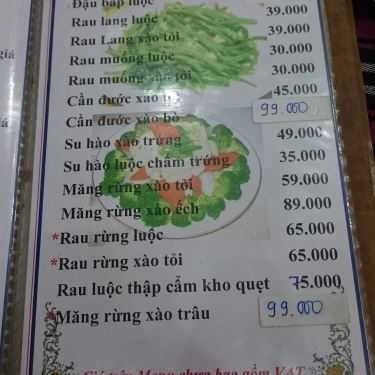 Đậu bắp luộc
Rau lang luộc 39.000
Rau Lang xào tỏi 39.000
Rau muống luộc 30.000
Rau muống xào tỏi 30.000
Cần đước xào 45.000
Cần đước xào bò 99.000
Su hào xào trứng 49.000
Su hào luộc chấm trứng 35.000
Măng rừng xào tỏi 59.000
Măng rừng xào ếch 89.000
*Rau rừng luộc 65.000
*Rau rừng xào tỏi 65.000
Rau luộc thập cẩm kho quẹt 75.000
*Măng rừng xào trâu 99.000
Giá trên Menu chưa bao gồm VAT